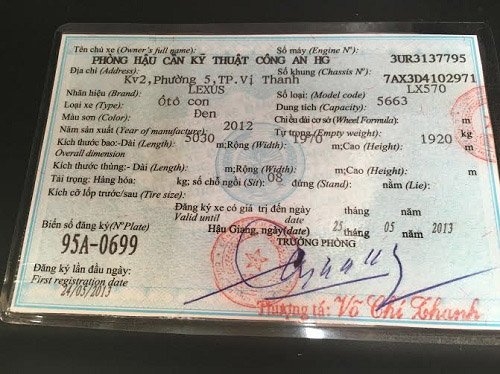 Tên chủ xe (Owner's full name): Số máy (Engine Nº):
PHÒNG HẬU CẦN KỸ THUẬT CÔNG AN HG 3UR3137795
Địa chỉ (Address): Số khung (Chassis Nº):
Kv2, Phường 5, TP. Vị Thanh 7AX3D4102971
Nhãn hiệu (Brand): LEXUS Số loại: (Model code) LX570
Loại xe (Type): Ôtô con Dung tích (Capacity): 5663
Màu sơn (Color): Đen Chiều dài cơ sở (Wheel Formula): m
Năm sản xuất (Year of manufacture) 2012 Tự trọng (Empty weight): m
Kích thước bao:-Dài (Length) 5030 m;Rộng (Width): 1970 m;Cao (Height): 1920 m
Overall dimension
Kích thước thùng:- Dài (Length): m;Rộng (Width): m;Cao (Height): m
Tải trọng: Hàng hóa: kg; số chỗ ngồi (Sit): 08 đứng (Stand): nằm (Lie):
Kích cỡ lốp trước/sau (Tire size):
Đăng ký xe có giá trị đến ngày tháng năm
Valid until (date)
Biển số đăng ký(Nº Plate) Hậu Giang, ngày(date) 23 tháng 05 năm 2013
95A-0699 TRƯỞNG PHÒNG
Đăng ký lần đầu ngày:
First registration date
24/05/2013
Thượng tá: Võ Chí Thanh